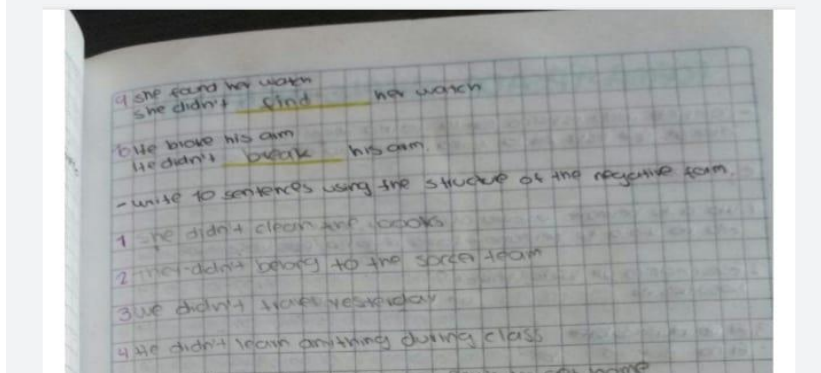 9 she found her watch
She didn't find her watch
10 He broke his arm
He didn't break his arm.
- write 10 sentences using the strucue of the negative form.
1 she didn't clean the
2 They didn't belong to the sorcer team
3 we didn't travel yesterday
4 He didn't learn anything during class
home